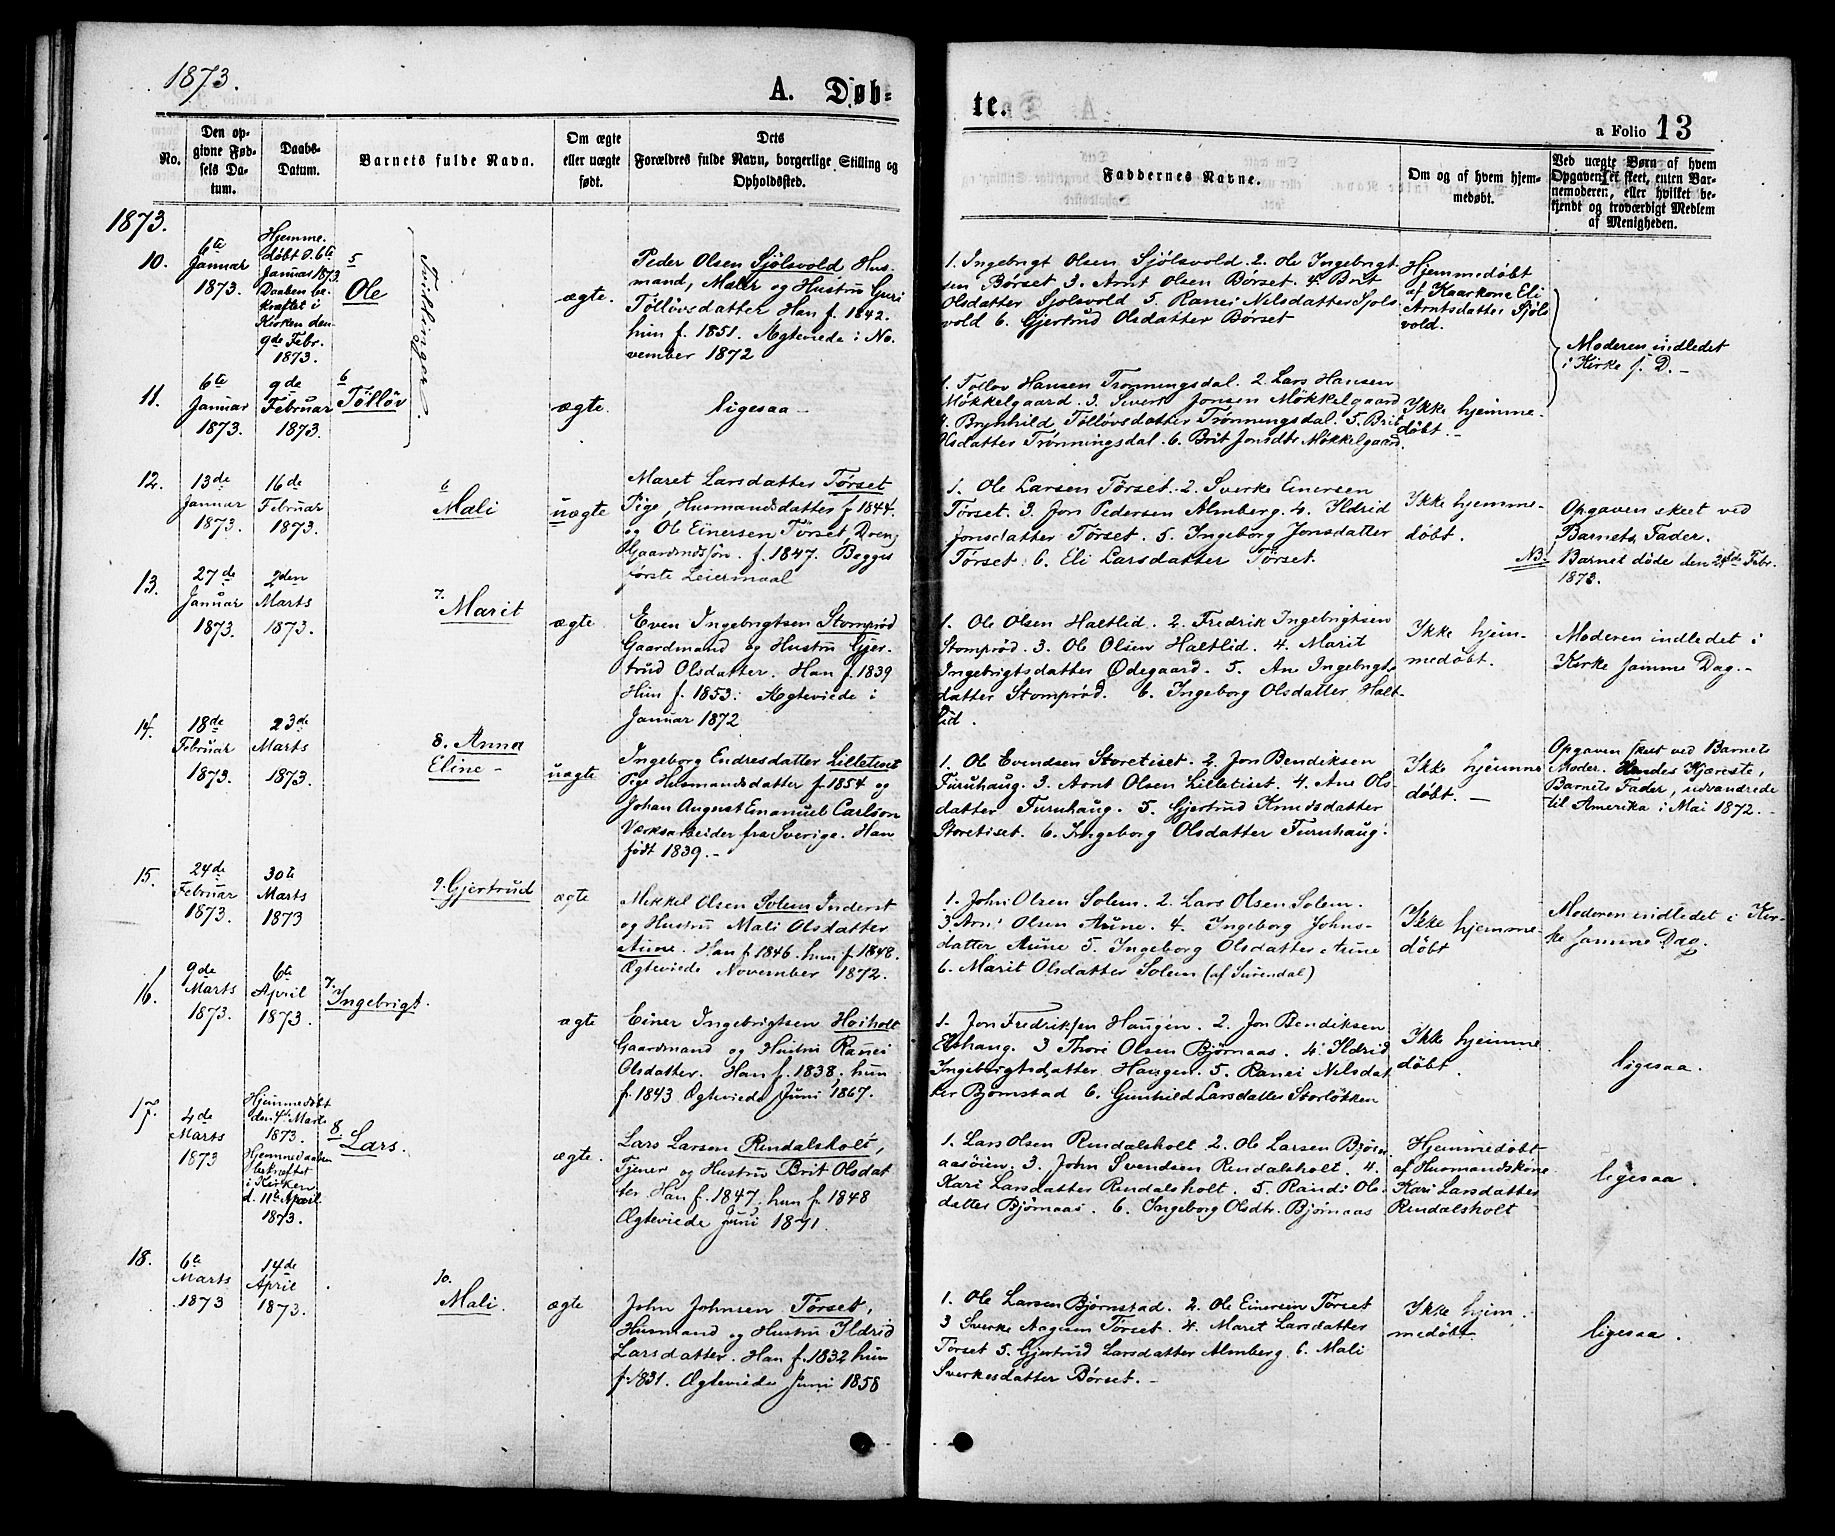 1873.
A. Døb-
te.
a Folio 13
No.
Den op-
givne Fød-
sels Da-
tum.
Daabs-
Datum.
Barnets fulde Navn.
Om ægte
eller uægte
født.
Dets
Forældres fulde Navn, borgerlige Stilling og
Opholdssted.
Faddernes Navne.
Om og af hvem hjem-
medøbt.
Ved uægte Børn af hvem
Opgaven er skeet, enten Bar-
nemoderen, eller hvilket be-
kjendt og troværdigt Medlem
af Menigheden.
1873.
10.
6te
Januar
1873.
Hjemme-
døbt d. 6te
Januar 1873.
Daaben be-
kræftet i
Kirken den
9de Febr.
1873.
5
Ole
Tvillinger.
ægte.
Peder Olsen Sjölsvold, Hus-
mand, Maler og Hustru Guri
Töllövsdatter Han f. 1842.
hun f. 1851. Ægteviede i No-
vember 1872
1. Ingebrigt Olsen Sjölsvold. 2. Ole Ingebrigt-
sen Børset. 3. Arnt Olsen Børset. 4. Brit
Olsdatter Sjölsvold 5. Ranei Nilsdatter Sjöls-
vold 6. Gjertrud Olsdatter Børset
Hjemmedøbt
af Kaarkone Eli
Arntsdatter Sjöls-
vold.
Moderen indledet
i Kirke s. D. -
11.
6te
Januar
1873.
9de
Februar
1873.
6
Töllöv
ægte.
ligesaa -
1. Tollov Hansen Trønningsdal. 2. Lars Hansen
Møkkelgaard. 3. Sivert Jonsen Møkkelgaard
4. Brynhild Töllövsdatter Trønningsdal. 5. Brit
Olsdatter Trønningsdal. 6. Brit Jonsdtr Møkkelgaard.
Ikke hjemme-
døbt. -
12.
13de
Januar
1873.
16de
Februar
1873.
6
Mali
uægte
Maret Larsdatter Tørset
Pige, Husmandsdatter f 1844.
og Ole Einersen Tørset, Dreng
Gaardmdssøn. f. 1847. Begges
første Leiermaal
1. Ole Larsen Tørset. 2. Sverke Einersen
Tørset. 3. Jon Pedersen Almberg. 4. Ildrid
Jonsdatter Tørset. 5. Ingeborg Jonsdatter
Tørset. 6. Eli Larsdatter Tørset.
Ikke hjemme-
døbt.
NB.
Opgaven skeet ved
Barnets Fader.
Barnet døde den 21de Febr.
1873.
13.
27de
Januar
1873.
2den
Marts
1873.
7.
Marit
ægte.
Even Ingebrigtsen Stomprød
Gaardmand og Hustru Gjer-
trud Olsdatter. Han f. 1839
Hun f. 1853. Ægteviede i
Januar 1872
1. Ole Olsen Haltlid. 2. Fredrik Ingebrigtsen
Stomprød. 3. Ole Olsen Haltlid. 4. Marit
Ingebrigtsdatter Ødegaard. 5. Ane Ingebrigts-
datter Stomprød. 6. Ingeborg Olsdatter Halt-
lid.
Ikke hjem-
medøbt.
Moderen indledet i
Kirke samme Dag. -
14.
18de
Februar
1873.
23de
Marts
1873.
8. Anna
Eline -
uægte
Ingeborg Endresdatter Lilletiset
Pige Husmandsdatter f. 1854 og
Johan August Emanuel Carlson
Værksarbeider fra Sverige. Han
født 1839. -
1. Ole Evendsen Storetiset. 2. Jon Bendiksen
Furuhaug. 3. Arnt Olsen Lilletiset. 4. Ane Ols-
datter Furuhaug. 5. Gjertrud Knudsdatter
Storetiset. 6. Ingeborg Olsdatter Furuhaug.
Ikke hjemme
døbt. -
Opgaven skeet ved Barnets
Moder. Hendes Kjæreste,
Barnets Fader, udvandrede
til Amerika i Mai 1872. -
15.
24de
Februar
1873.
30te
Marts
1873
9. Gjertrud
ægte
Mikkel Olsen Solem Inderst
og Hustru Mali Olsdatter
Aune. Han f. 1846. hun f. 1848.
Ægteviede November 1872.
1. John Olsen Solem. 2. Lars Olsen Solem.
3. Arnt Olsen Aune. 4. Ingeborg Johns-
datter Aune 5. Ingeborg Olsdatter Aune
6. Marit Olsdatter Solem (af Surendal)
Ikke hjemme-
døbt
Moderen indledet i Kir-
ke samme Dag.
16.
9de
Marts
1873.
6te
April
1873.
7.
Ingebrigt.
ægte
Einer Ingebrigtsen Hoiholt
Gaardmand og Hustru Ranei
Olsdatter. Han f. 1838. hun
f. 1843 Ægteviede Juni 1867.
1. Jon Fredriksen Haugen. 2. Jon Bendiksen
Elshaug. 3 Thore Olsen Bjørnaas. 4. Ildrid
Ingebrigtsdatter Haugen. 5. Ranei Nilsdat-
ter Bjørnstad 6. Gunhild Larsdatter Storløkken
Ikke hjemme
døbt.
ligesaa.
17.
4de
Marts
1873
Hjemmedøbt
den 4de Marts
1873.
Hjemmedaaben
bekræftet
i Kirken
d. 11te April
1873.
8
Lars.
ægte.
Lars Larsen Rindalsholt,
Tjener og Hustru Brit Olsdat
ter. Han f. 1847. hun f. 1848
Ægteviede Juni 1871.
1. Lars Olsen Rindalsholt 2. Ole Larsen Bjørn-
aasøien. 3. John Svendsen Rindalsholt. 4.
Kari Larsdatter Rindalsholt. 5. Randi Ols-
datter Bjørnaas. 6. Ingeborg Olsdtr. Bjørnaas
Hjemmedøbt
af Husmandskone
Kari Larsdatter
Rindalsholt
ligesaa.
18.
6te
Marts
1873
14de
April
1873.
10.
Mali.
ægte
John Johnsen Tørset,
Husmand og Hustru Ildrid
Larsdatter. Han f. 1832 hun
f. 1831. Ægteviede Juni 1858
1. Ole Larsen Bjørnstad. 2. Ole Einersen Tørset
3 Sverke Aagesen Tørset. 4. Maret Larsdatter
Tørset 5. Gjertrud Larsdatter Almberg. 6. Mali
Sverkesdatter Børset. -
Ikke hjem-
medøbt
ligesaa.